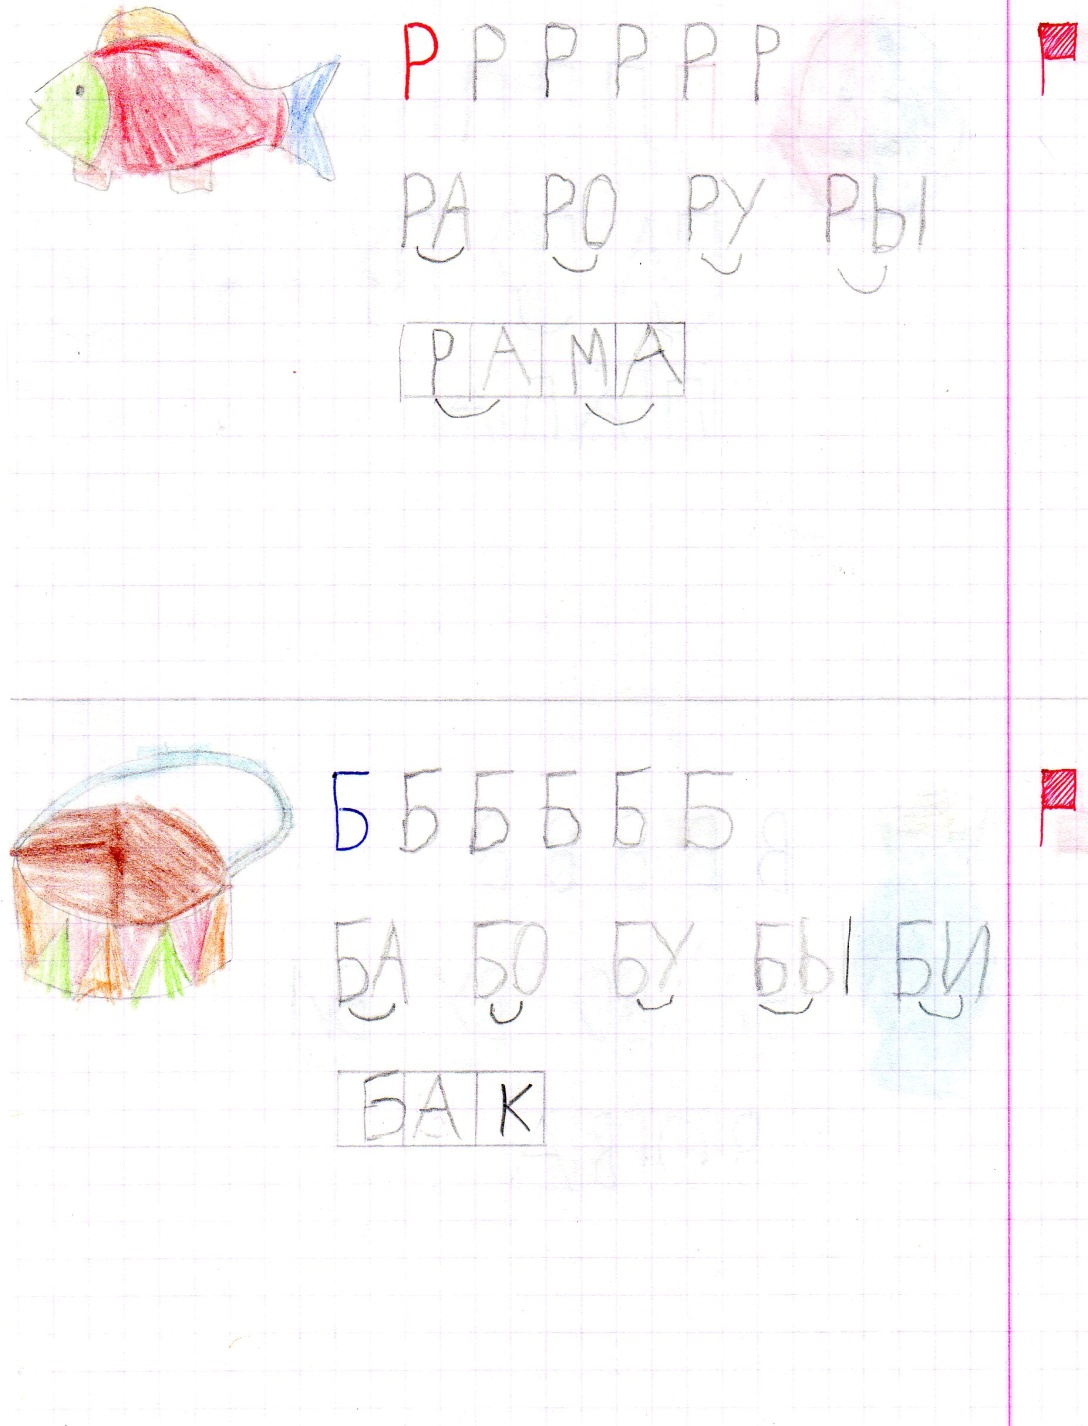 Р Р Р Р Р Р
РА РО РУ РЫ
РАМА
Б Б Б Б Б Б
БА БО БУ БЫ БИ
БАК